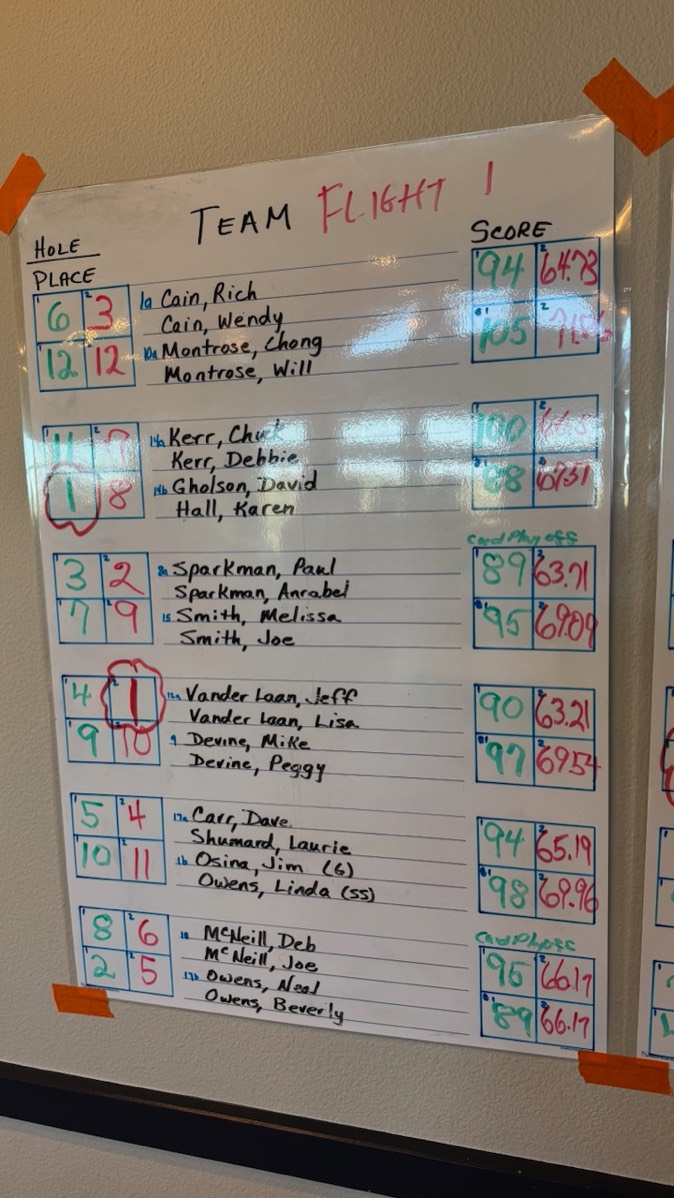 TEAM FLIGHT 1
HOLE SCORE
PLACE
6 3 1a Cain, Rich 94 64.73
Cain, Wendy
12 12 10a Montrose, Chong 105
Montrose, Will
11 7 14a Kerr, Chuck 100
Kerr, Debbie
1 8 14b Gholson, David 88 67.51
Hall, Karen
Card Play off
3 2 8a Sparkman, Paul 89 63.71
Sparkman, Anrabel
7 9 15 Smith, Melissa 95 69.09
Smith, Joe
4 1 12a Vander Laan, Jeff 90 63.21
Vander Laan, Lisa
9 10 9 Devine, Mike 97 69.54
Devine, Peggy
5 4 17a Carr, Dave. 94 65.19
Shumard, Laurie
10 11 1b Osina, Jim (G) 98 69.96
Owens, Linda (SS)
8 6 18 McNeill, Deb 95 66.17
McNeill, Joe
2 5 17b Owens, Neal 89 66.17
Owens, Beverly